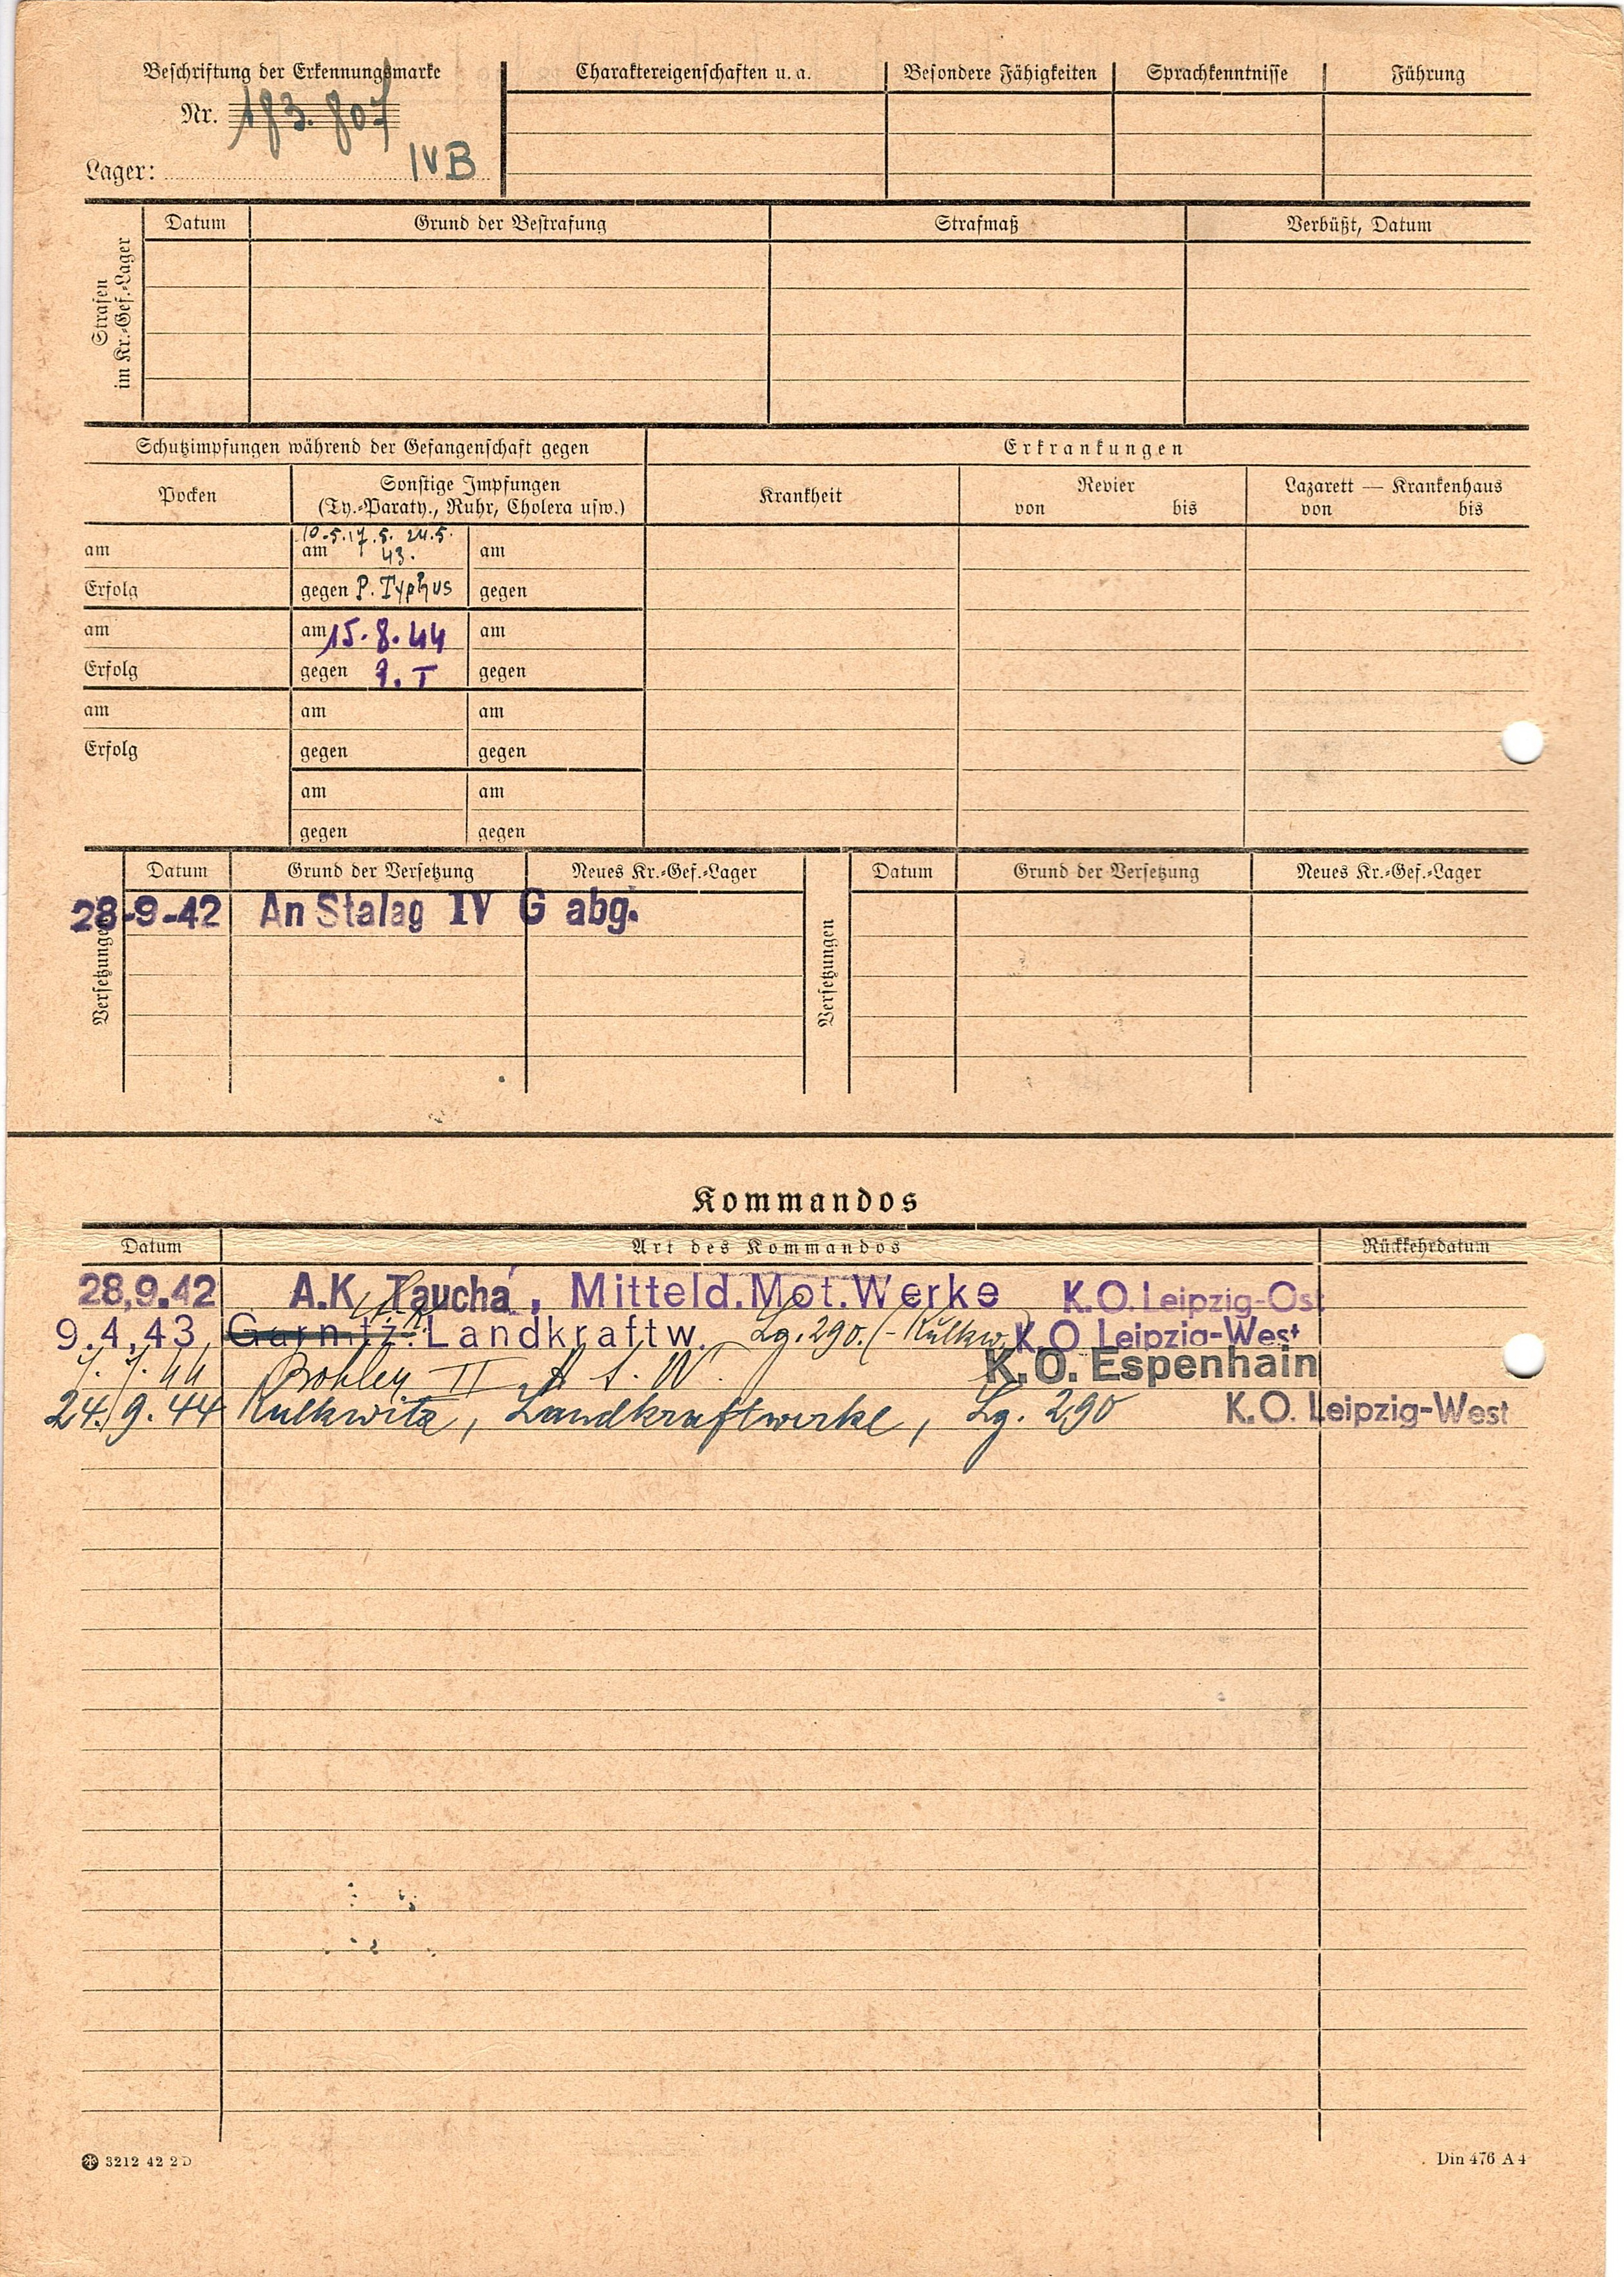 Beschriftung der Erkennungsmarke
Nr. 183.807
Lager: IVB
Charaktereigenschaften u. a.
Besondere Fähigkeiten
Sprachkenntnisse
Führung
Strafen im Kr.-Gef.-Lager
Datum
Grund der Bestrafung
Strafmaß
Verbüßt, Datum
Schutzimpfungen während der Gefangenschaft gegen
Erkrankungen
Pocken
Sonstige Impfungen
(Ty.-Paraty., Ruhr, Cholera usw.)
Krankheit
Revier
von bis
Lazarett — Krankenhaus
von bis
10.5.17.5. 24.5.
am am 43. am
Erfolg gegen P. Typhus gegen
am am 15.8.44 am
Erfolg gegen P. T gegen
am am am
Erfolg gegen gegen
am am
gegen gegen
Versetzungen
Datum Grund der Versetzung Neues Kr.-Gef.-Lager
28-9-42 An Stalag IV G abg.
Versetzungen
Datum Grund der Versetzung Neues Kr.-Gef.-Lager
Kommandos
Datum Art des Kommandos Rückkehrdatum
28,9.42 A.K. Taucha, Mitteld.Mot.Werke K.O. Leipzig-Ost
9.4,43, Garnitz. Landkraftw. Lg. 290. (-Kulkw.) K.O. Leipzig-West
7.7.44 Böhlen II K.O. Espenhain
24.9.44 Kulkwitz, Landkraftwerke, Lg. 290 K.O. Leipzig-West
3212 42 2 D
Din 476 A 4